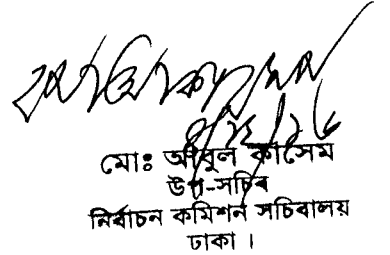 মোঃ আবুল কাসেম
উপ-সচিব
নির্বাচন কমিশন সচিবালয়
ঢাকা ।